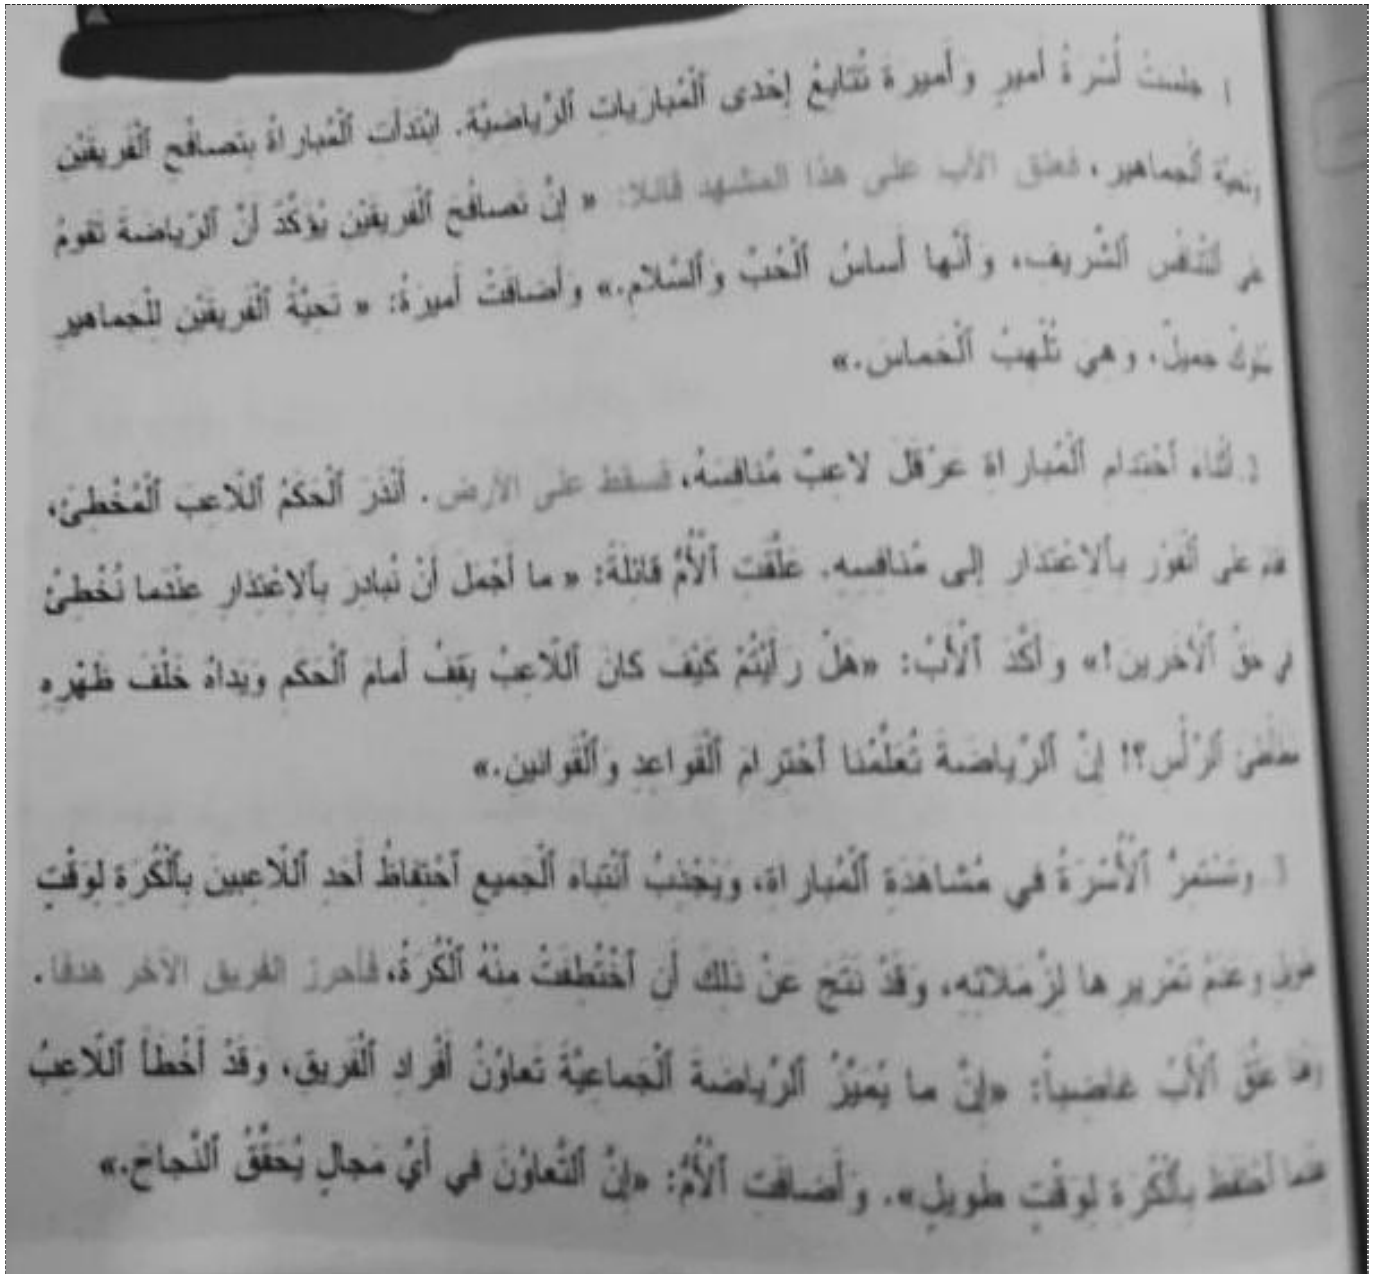 1 جلستْ أُسْرَةُ أَميرٍ وَأَميرَةَ تُتَابِعُ إِحْدى ٱلْمُبارَياتِ ٱلرِّياضِيَّةِ. ابْتَدَأَتِ ٱلْمُباراةُ بِتَصافُحِ ٱلْفَريقَيْنِ
وتحِيَّة ٱلْجماهير، فعلق الأب على هذا المشهد قائلا: « إِنَّ تَصافُحَ ٱلْفَريقَيْنِ يُؤَكِّدُ أَنَّ ٱلرِّياضَةَ تَقومُ
على ٱلتَّنافُسِ ٱلشَّريفِ، وَأَنَّها أَساسُ ٱلْحُبِّ وَٱلسَّلامِ.» وَأَضافَتْ أَميرَةُ: « تَحِيَّةُ ٱلْفَريقَيْنِ لِلْجَماهيرِ
سُلوكٌ جميلٌ، وهِيَ تُلْهِبُ ٱلْحَماسَ.»
2. أَثْناءَ ٱحْتِدامِ ٱلْمُباراةِ عَرْقَلَ لاعِبٌ مُنافِسَهُ، فسقط على الأرض. أَنْذَرَ ٱلْحَكَمُ ٱللّاعِبَ ٱلْمُخْطِئَ،
فقام على ٱلْفَوْرِ بِٱلِاعْتِذارِ إِلى مُنافِسِهِ. عَلَّقَتِ ٱلْأُمُّ قائِلَةً: « ما أَجْمَلَ أَنْ نُبادِرَ بِٱلِاعْتِذارِ عِنْدَما نُخْطِئُ
في حَقِّ ٱلْآخَرينَ!» وَأَكَّدَ ٱلْأَبُ: «هَلْ رَأَيْتُمْ كَيْفَ كانَ ٱللّاعِبُ يَقِفُ أَمامَ ٱلْحَكَمِ وَيَداهُ خَلْفَ ظَهْرِهِ
مطأطئ ٱلرَّأْسِ؟! إِنَّ ٱلرِّياضَةَ تُعَلِّمُنا ٱحْتِرامَ ٱلْقَواعِدِ وَٱلْقَوانينِ.»
3. وتَسْتَمِرُّ ٱلْأُسْرَةُ في مُشاهَدَةِ ٱلْمُباراةِ، وَيَجْذِبُ ٱنْتِباهَ ٱلْجَميعِ ٱحْتِفاظُ أَحَدِ ٱللّاعِبينَ بِٱلْكُرَةِ لِوَقْتٍ
طويلٍ وعَدَمُ تَمْريرِها لِزُمَلائِهِ، وَقَدْ نَتَجَ عَنْ ذلِكَ أَنِ ٱخْتُطِفَتْ مِنْهُ ٱلْكُرَةُ، فأحرز الفريق الآخر هدفا.
وهُنا علَّقَ ٱلْأَبُ غاضِباً: «إِنَّ ما يُمَيِّزُ ٱلرِّياضَةَ ٱلْجَماعِيَّةَ تَعاوُنُ أَفْرادِ ٱلْفَريقِ، وَقَدْ أَخْطَأَ ٱللّاعِبُ
عندما ٱحْتَفَظَ بِٱلْكُرَةِ لِوَقْتٍ طَويلٍ». وَأَضافَتِ ٱلْأُمُّ: «إِنَّ ٱلتَّعاوُنَ في أَيِّ مَجالٍ يُحَقِّقُ ٱلنَّجاحَ.»